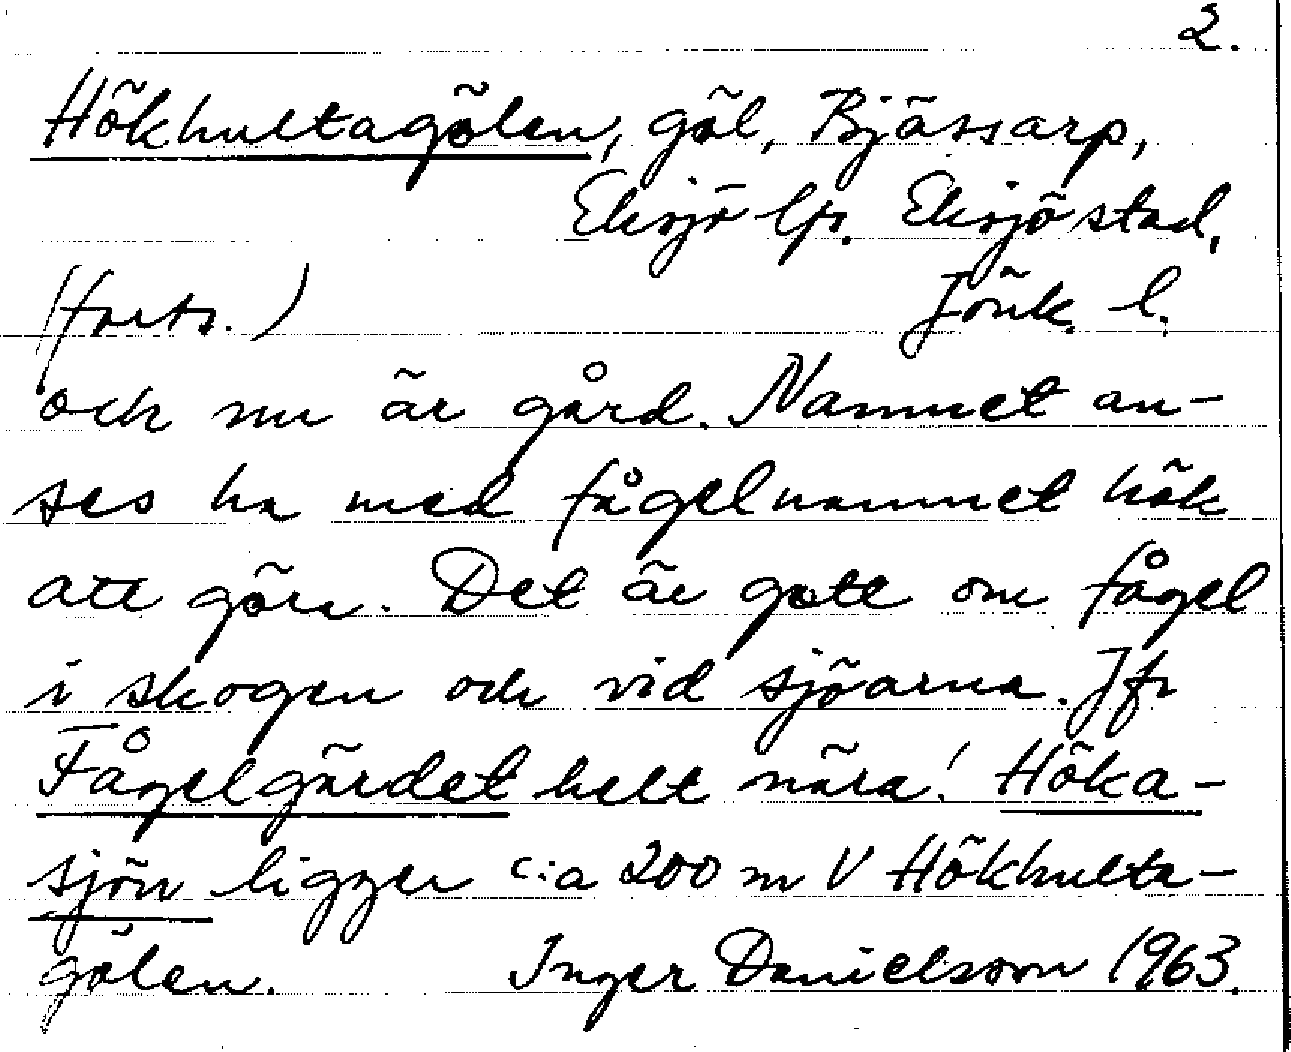 2.
Hökhultagölen, göl, Bjässarp,
Eksjö lfs. Eksjö stad,
(forts.) Jönk. l.
och nu är gård. Namnet an-
ses ha med fågelnamnet hök
att göra. Det är gott om fågel
i skogen och vid sjöarna. Jfr
Fågelgärdet helt nära! Höka-
sjön ligger c:a 200 m V Hökhulta-
gölen. Inger Danielsson 1963.